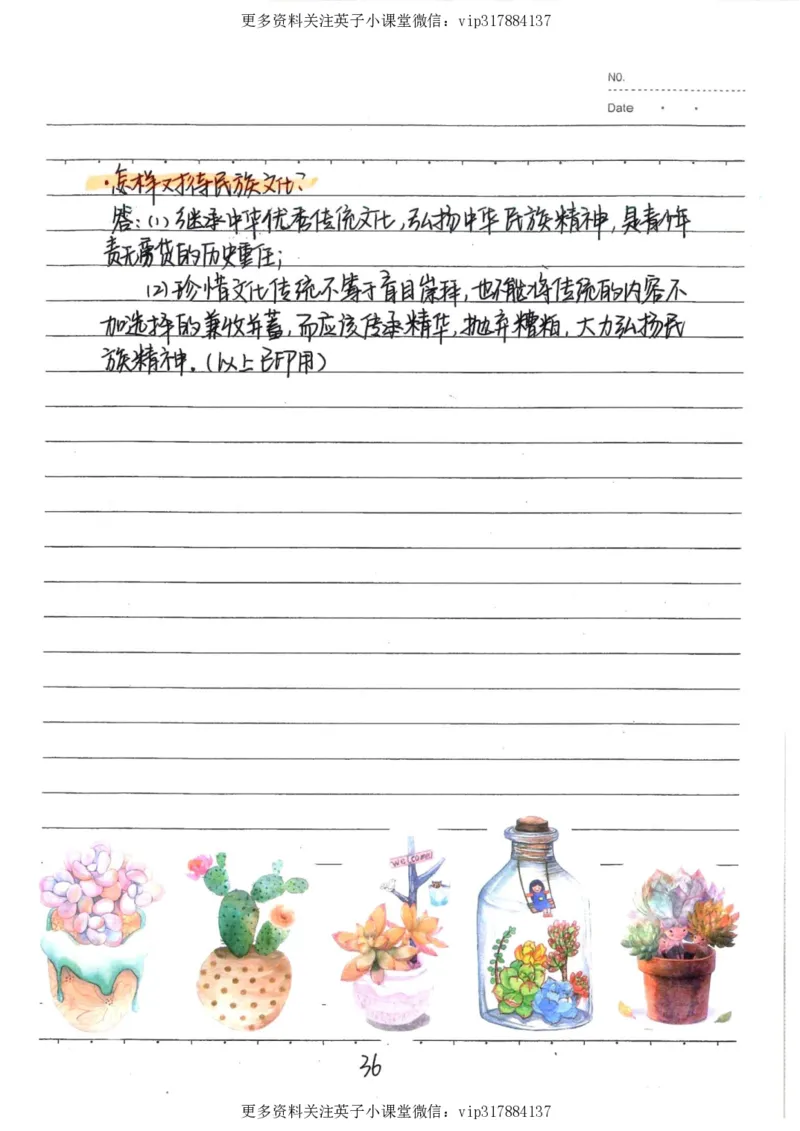 更多资料关注英子小课堂微信：vip317884137
NO.
Date
·怎样对待民族文化？
答：(1)继承中华优秀传统文化，弘扬中华民族精神，是青少年
责无旁贷的历史重任；
(2)珍惜文化传统不等于盲目崇拜，也不能将传统的内容不
加选择的兼收并蓄，而应该传承精华，抛弃糟粕，大力弘扬民
族精神。（以上已印用）
welcome
36
更多资料关注英子小课堂微信：vip317884137